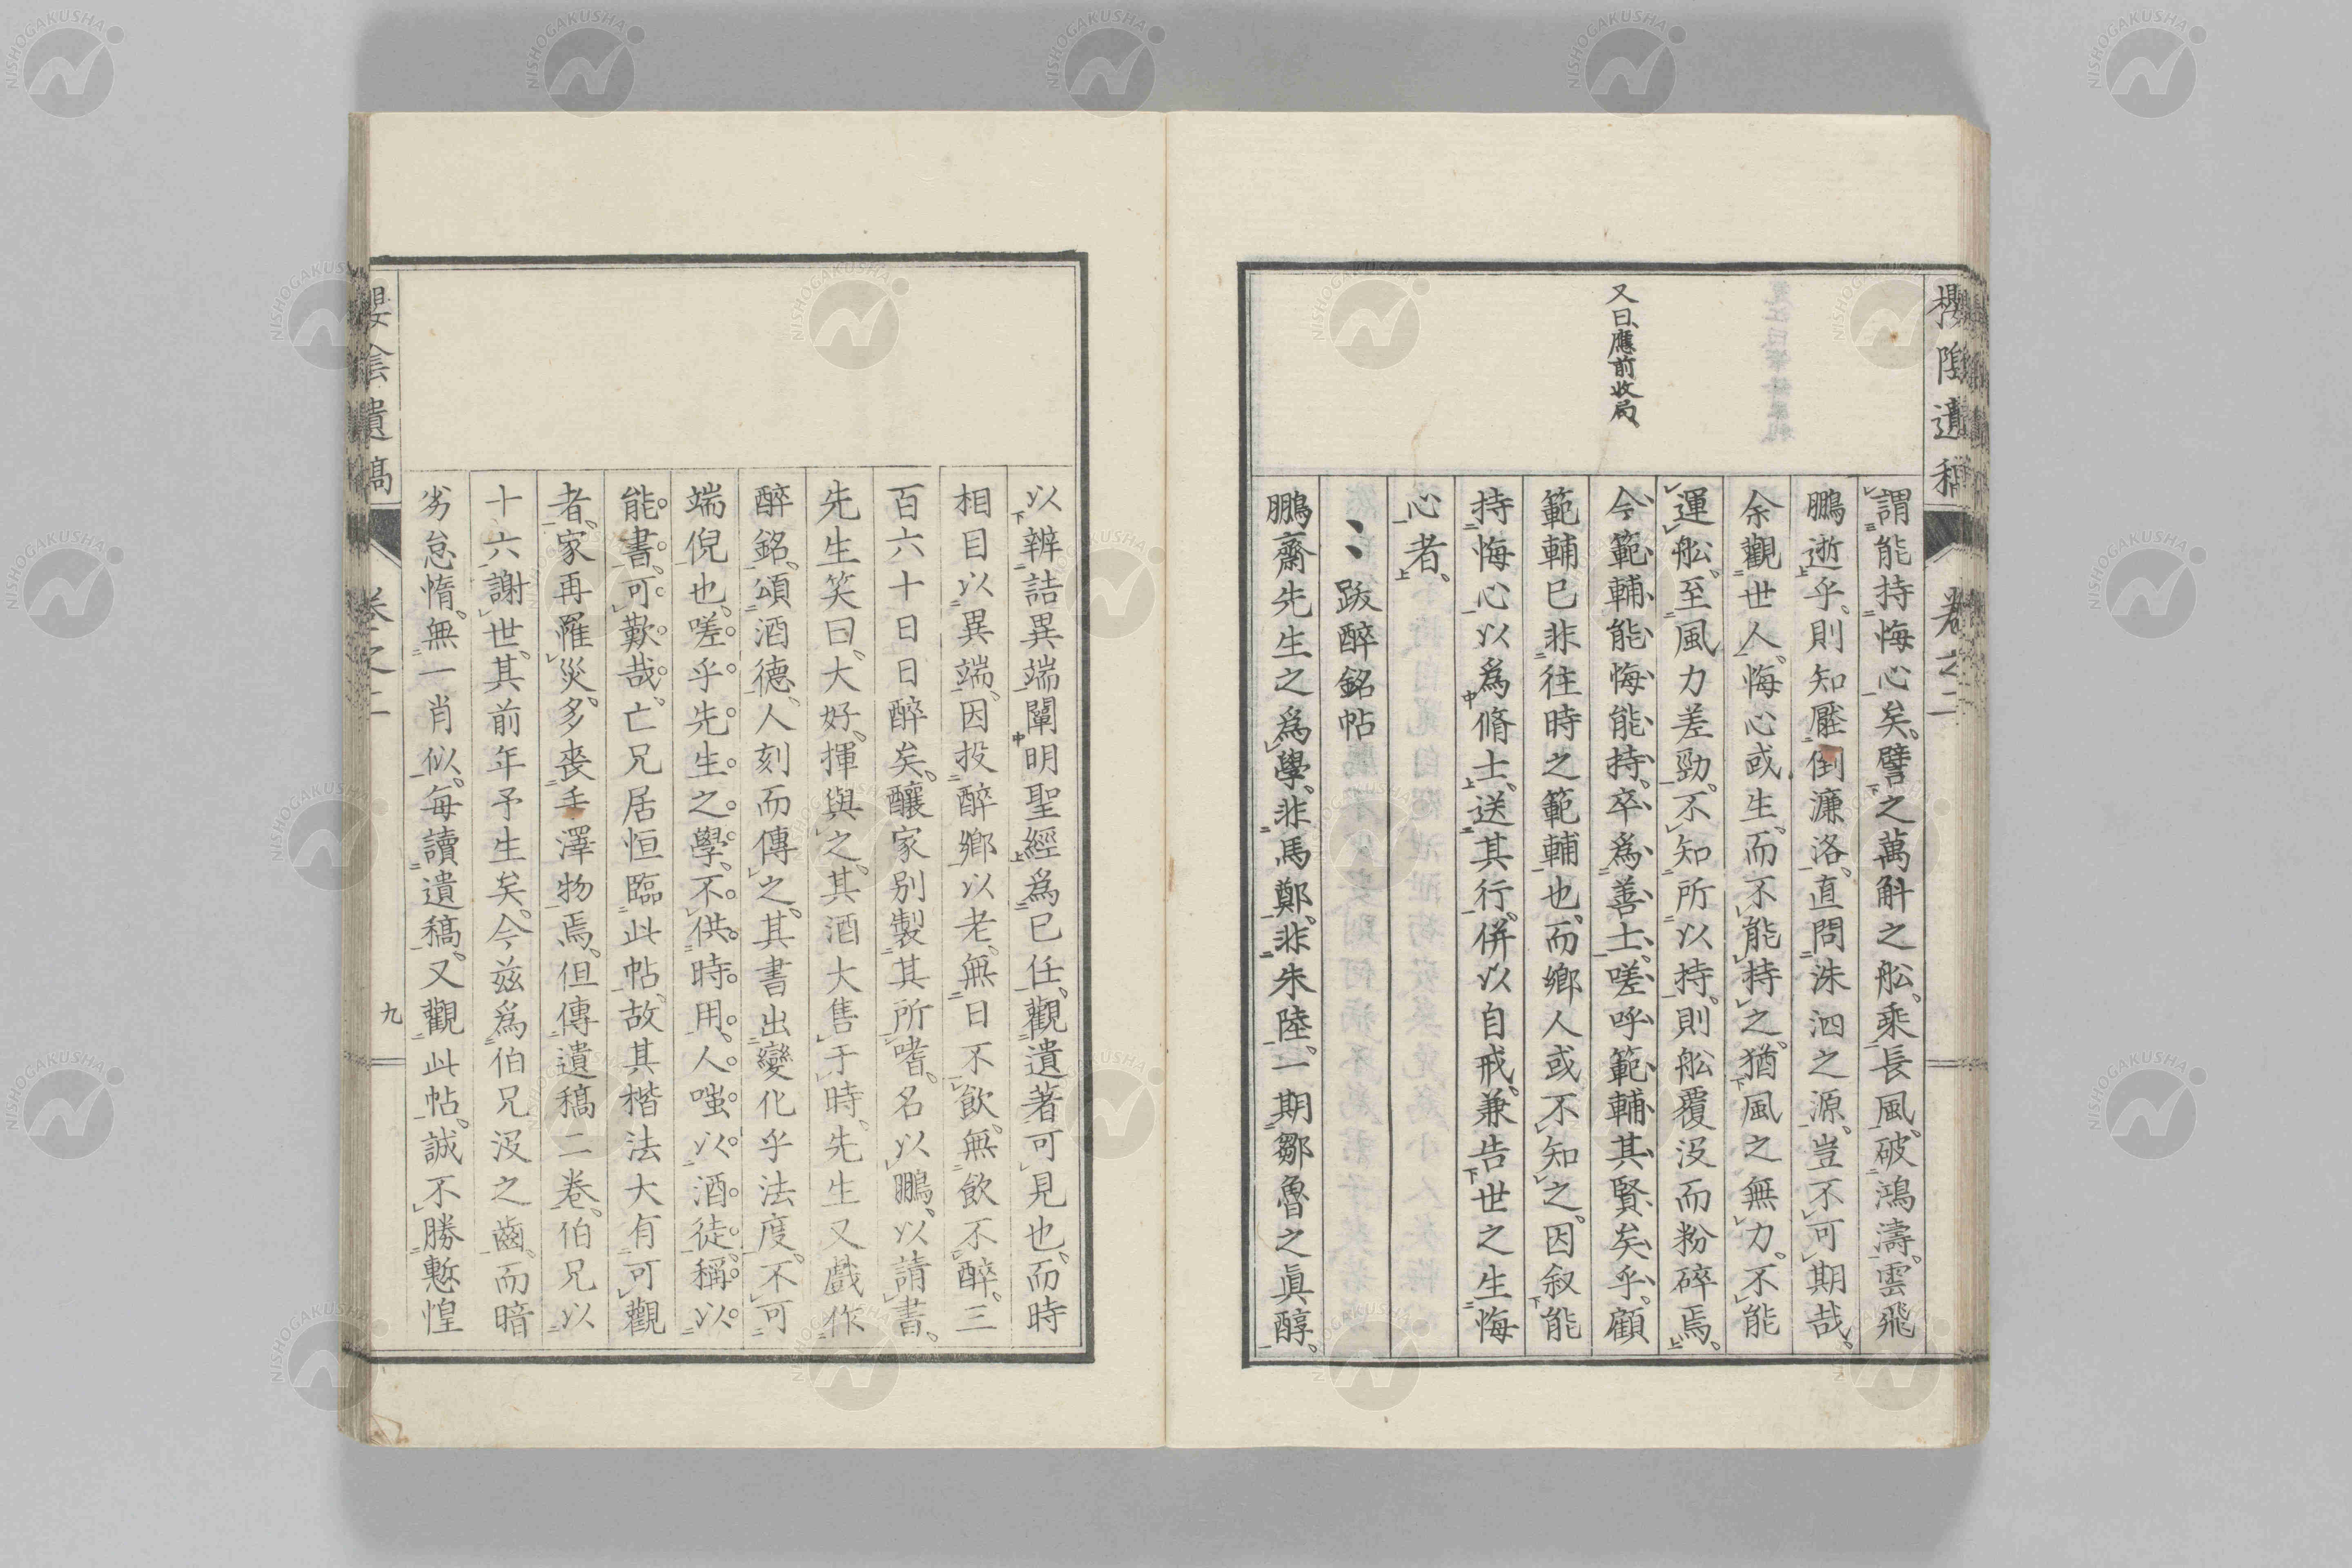 櫻陰遺稿
卷之二
又曰、應前收局、
謂能持悔心矣。譬之萬斛之舩。乘長風。破鴻濤。雲飛
鵬逝乎。則知壓倒濂洛。直問洙泗之源。豈不可期哉。
余觀世人。悔心或生。而不能持之。猶風之無力。不能
運舩。至風力差勁。不知所以持。則舩覆沒而粉碎焉。
今範輔能悔能持。卒爲善士。嗟呼範輔其賢矣乎。顧
範輔已非往時之範輔也。而鄉人或不知之。因叙能
持悔心以爲脩士。送其行。併以自戒。兼告世之生悔
心者。
跋醉銘帖
鵬齋先生之爲學。非馬鄭。非朱陸。一期鄒魯之眞醇。
以辨詰異端闡明聖經爲已任。觀遺著可見也。而時
相目以異端。因投醉鄉以老。無日不飲。無飲不醉。三
百六十日日醉矣。釀家別製其所嗜。名以鵬。以請書。
先生笑曰。大好。揮與之。其酒大售于時。先生又戲作
醉銘。頌酒德。人刻而傳之。其書出變化乎法度。不可
端倪也。嗟乎先生之學。不供時用。人嗤以酒徒。稱以
能書。可歎哉。亡兄居恒臨此帖。故其楷法大有可觀
者。家再罹災。多喪手澤物焉。但傳遺稿二卷。伯兄以
十六謝世。其前年予生矣。今茲爲伯兄沒之齒。而暗
劣怠惰。無一肖似。每讀遺稿。又觀此帖。誠不勝慙惶
櫻陰遺稿
卷之二
九